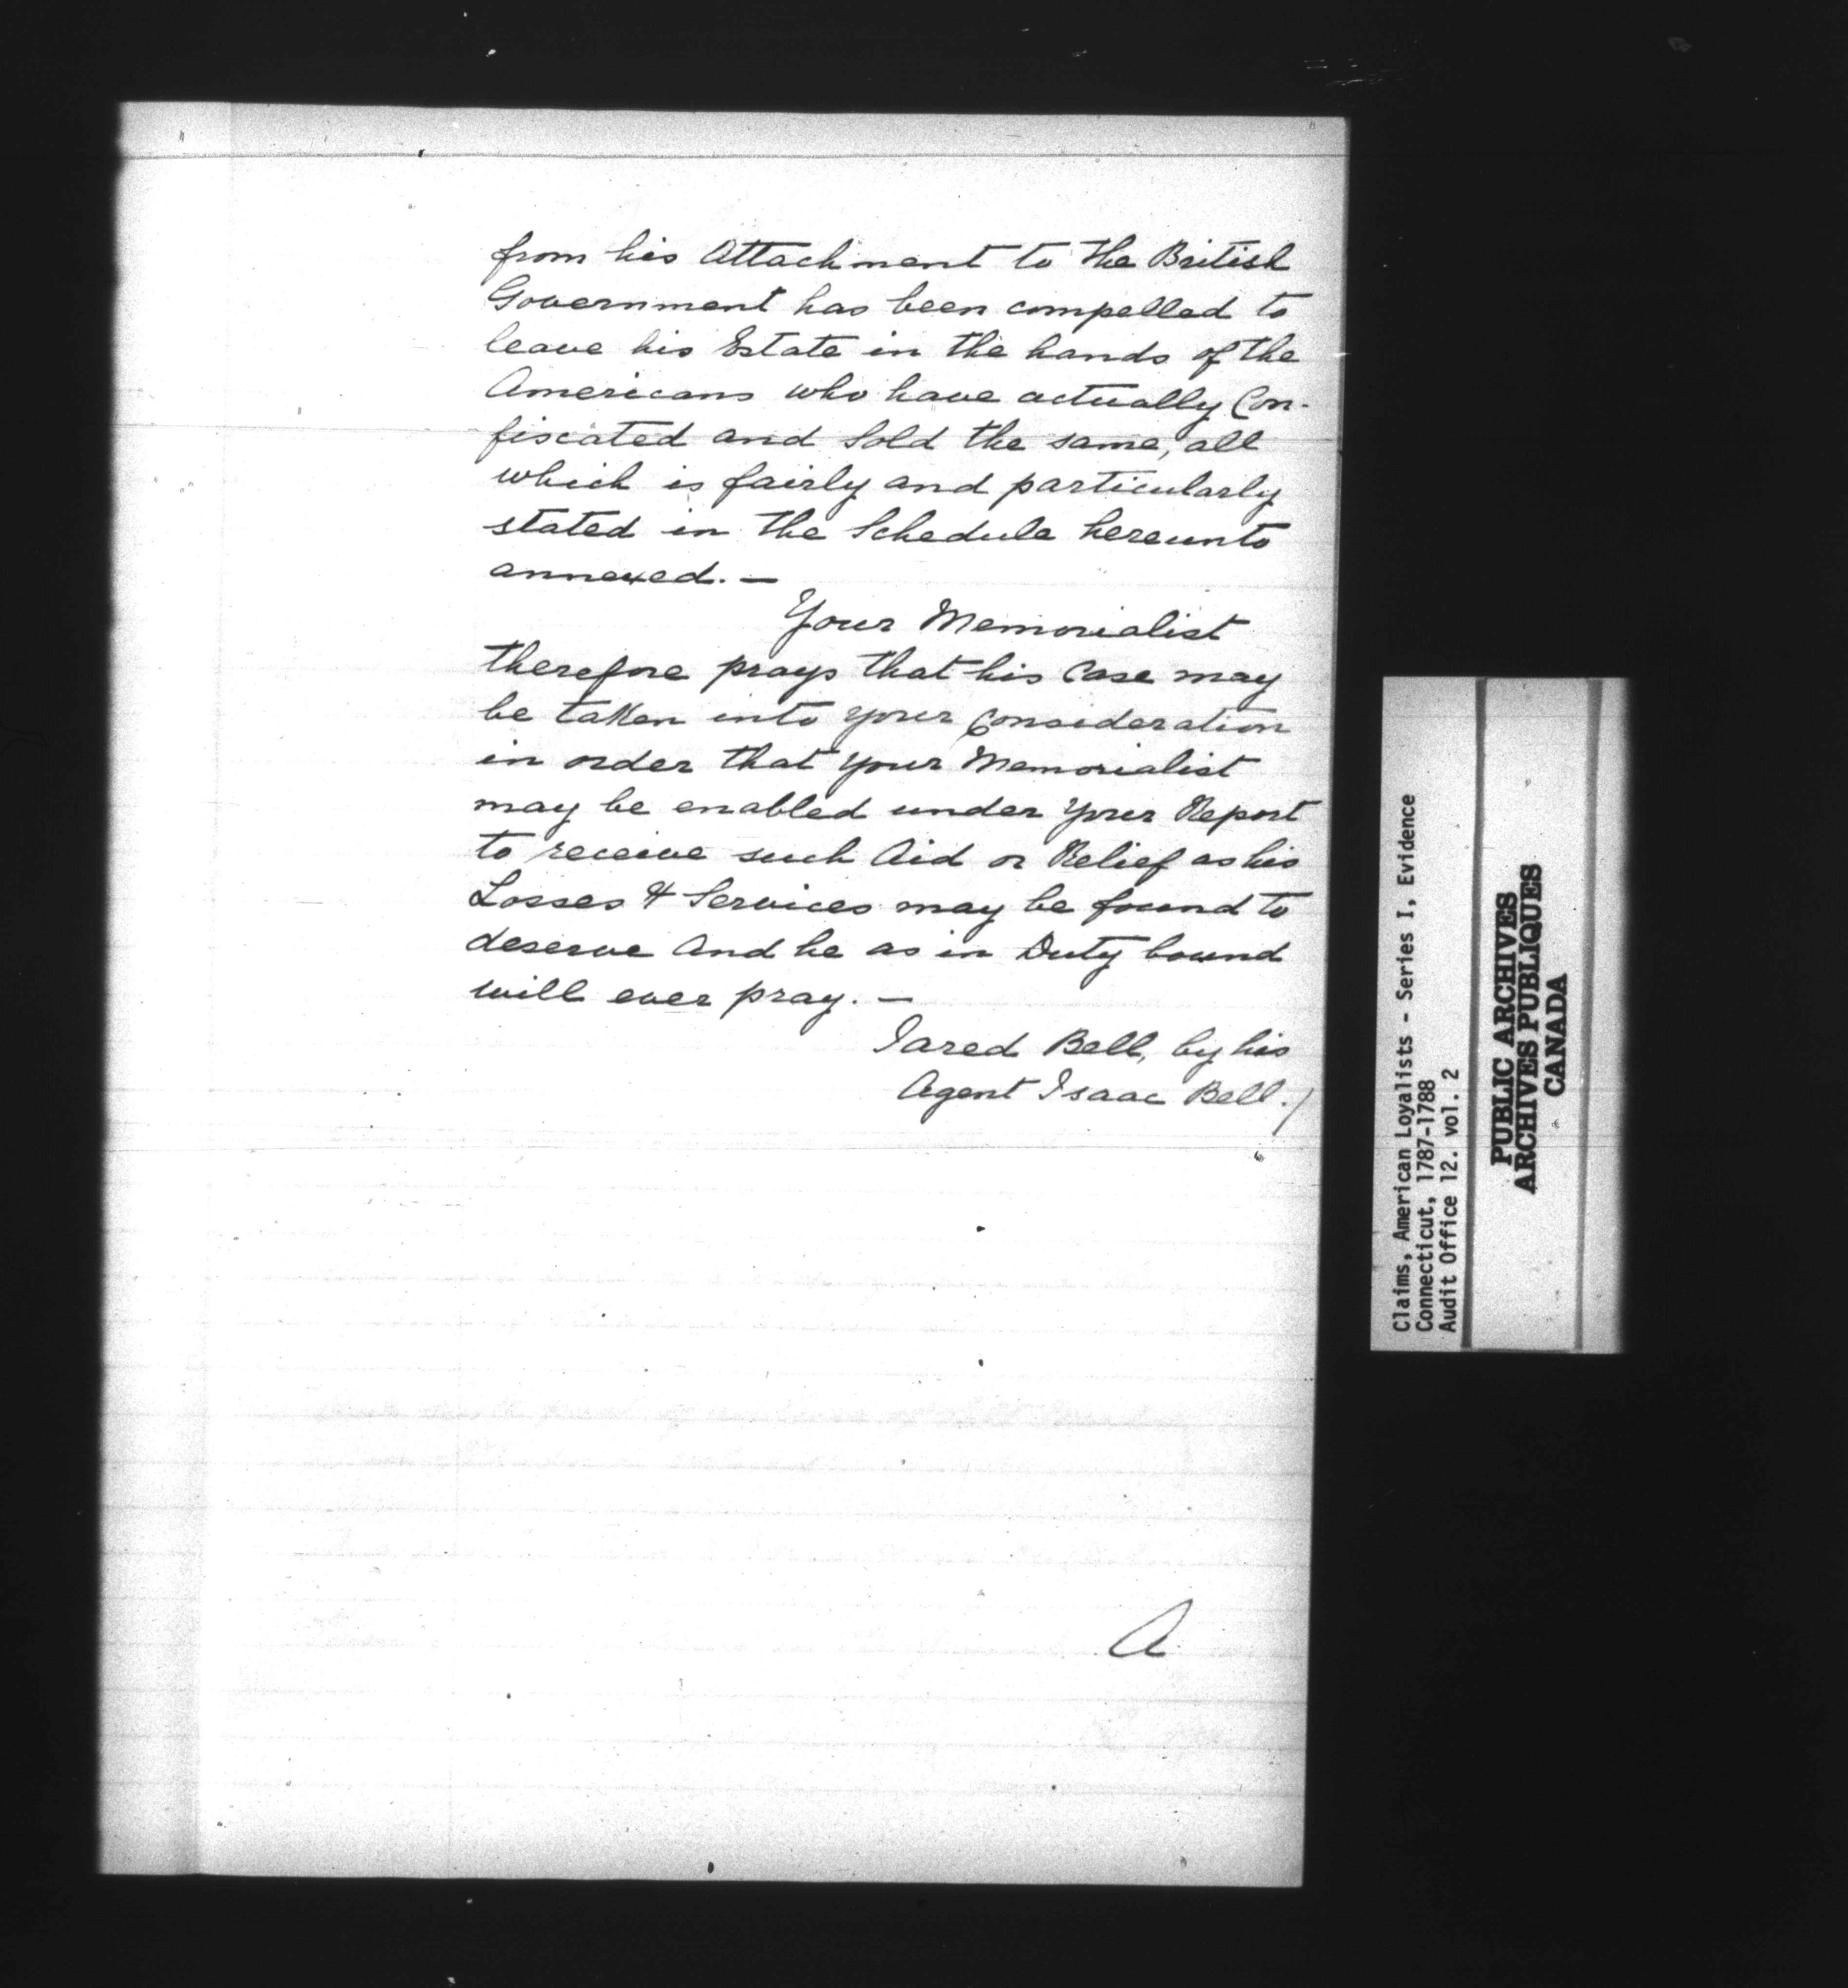 from his Attachment to the British
Government has been compelled to
leave his Estate in the hands of the
Americans who have actually Con-
fiscated and Sold the same, all
which is fairly and particularly
stated in the Schedule hereunto
annexed. —
Your Memorialist
therefore prays that his Case may
be taken into your Consideration
in order that your Memorialist
may be enabled under your Report
to receive such Aid or Relief as his
Losses & Services may be found to
deserve And he as in Duty bound
will ever pray. —
Jared Bell, by his
Agent Isaac Bell./
A
Claims, American Loyalists - Series I, Evidence
Connecticut, 1787-1788
Audit Office 12. vol. 2
PUBLIC ARCHIVES
ARCHIVES PUBLIQUES
CANADA